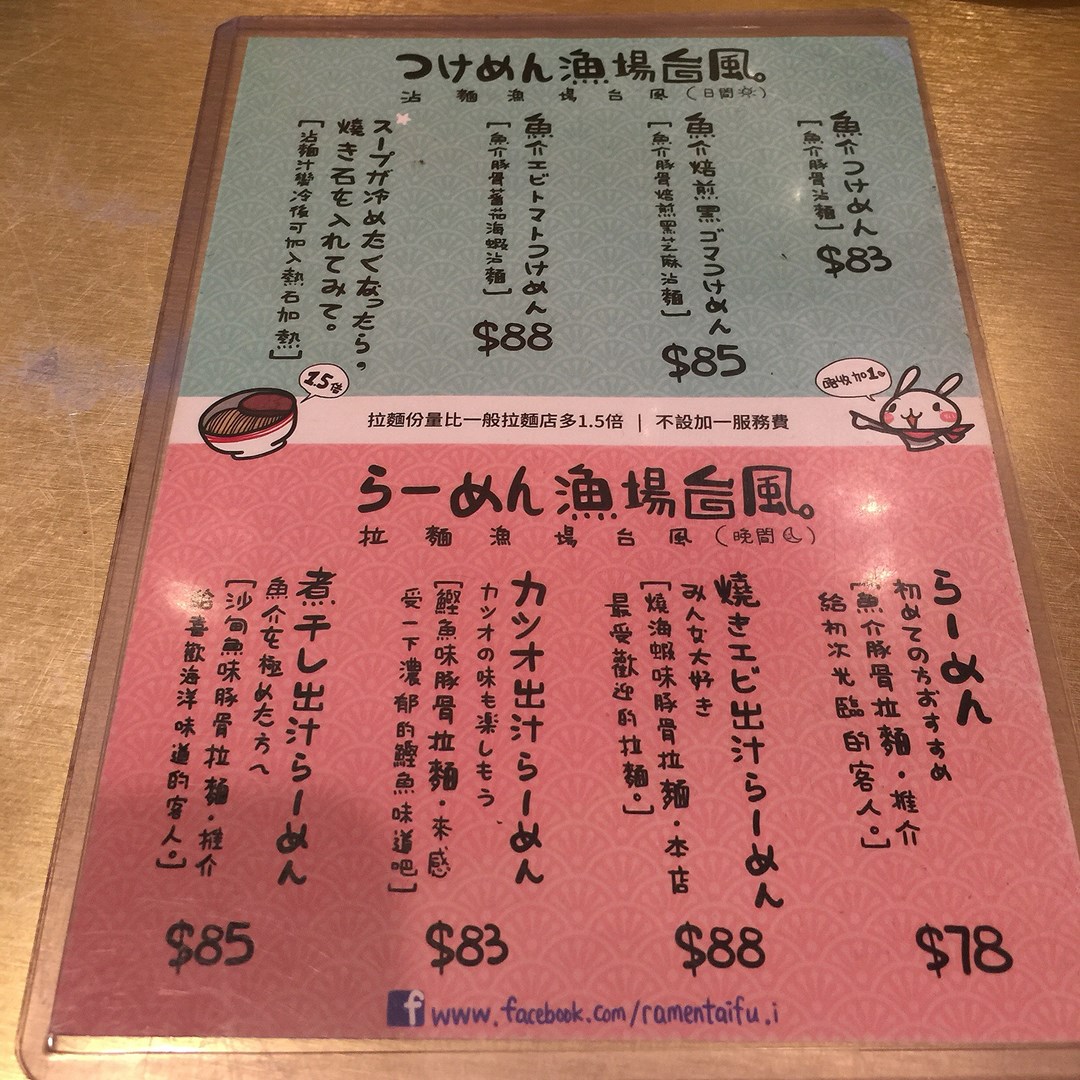 つけめん漁場台風。
沾麵漁場台風(日間☼)
魚介つけめん
[魚介豚骨沾麵]
$83
魚介焙煎黒ゴマつけめん
[魚介豚骨焙煎黑芝麻沾麵]
$85
魚介エビトマトつけめん
[魚介豚骨蕃茄海蝦沾麵]
$88
スープが冷めたくなったら。
焼き石を入れてみて。
[沾麵汁變冷後可加入熱石加熱]
1.5倍
拉麵份量比一般拉麵店多1.5倍 | 不設加一服務費
唔收加1
らーめん漁場台風。
拉麵漁場台風(晚間☾)
らーめん
初めての方おすすめ
[魚介豚骨拉麵・推介
給初次光臨的客人。]
$78
焼きエビ出汁らーめん
みんな大好き
[燒海蝦味豚骨拉麵・本店
最受歡迎的拉麵。]
$88
カツオ出汁らーめん
カツオの味も楽しもう
[鰹魚味豚骨拉麵・來感
受一下濃郁的鰹魚味道吧]
$83
煮干し出汁らーめん
魚介を極めた方へ
[沙甸魚味豚骨拉麵・推介
給喜歡海洋味道的客人。]
$85
f www.facebook.com/ramentaifu.i